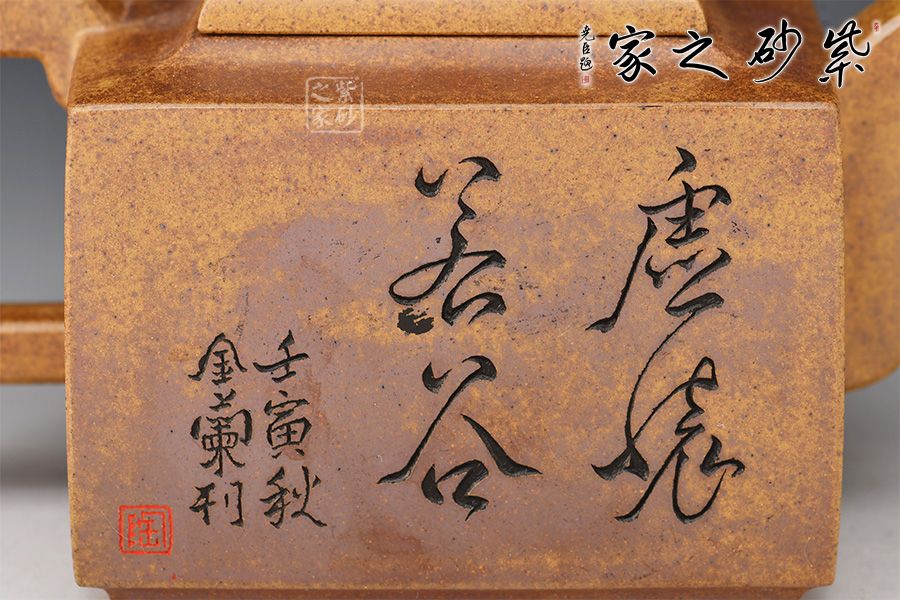 紫砂之家
尧臣题
紫砂之家
虚怀
若谷
壬寅秋
金蘭刊